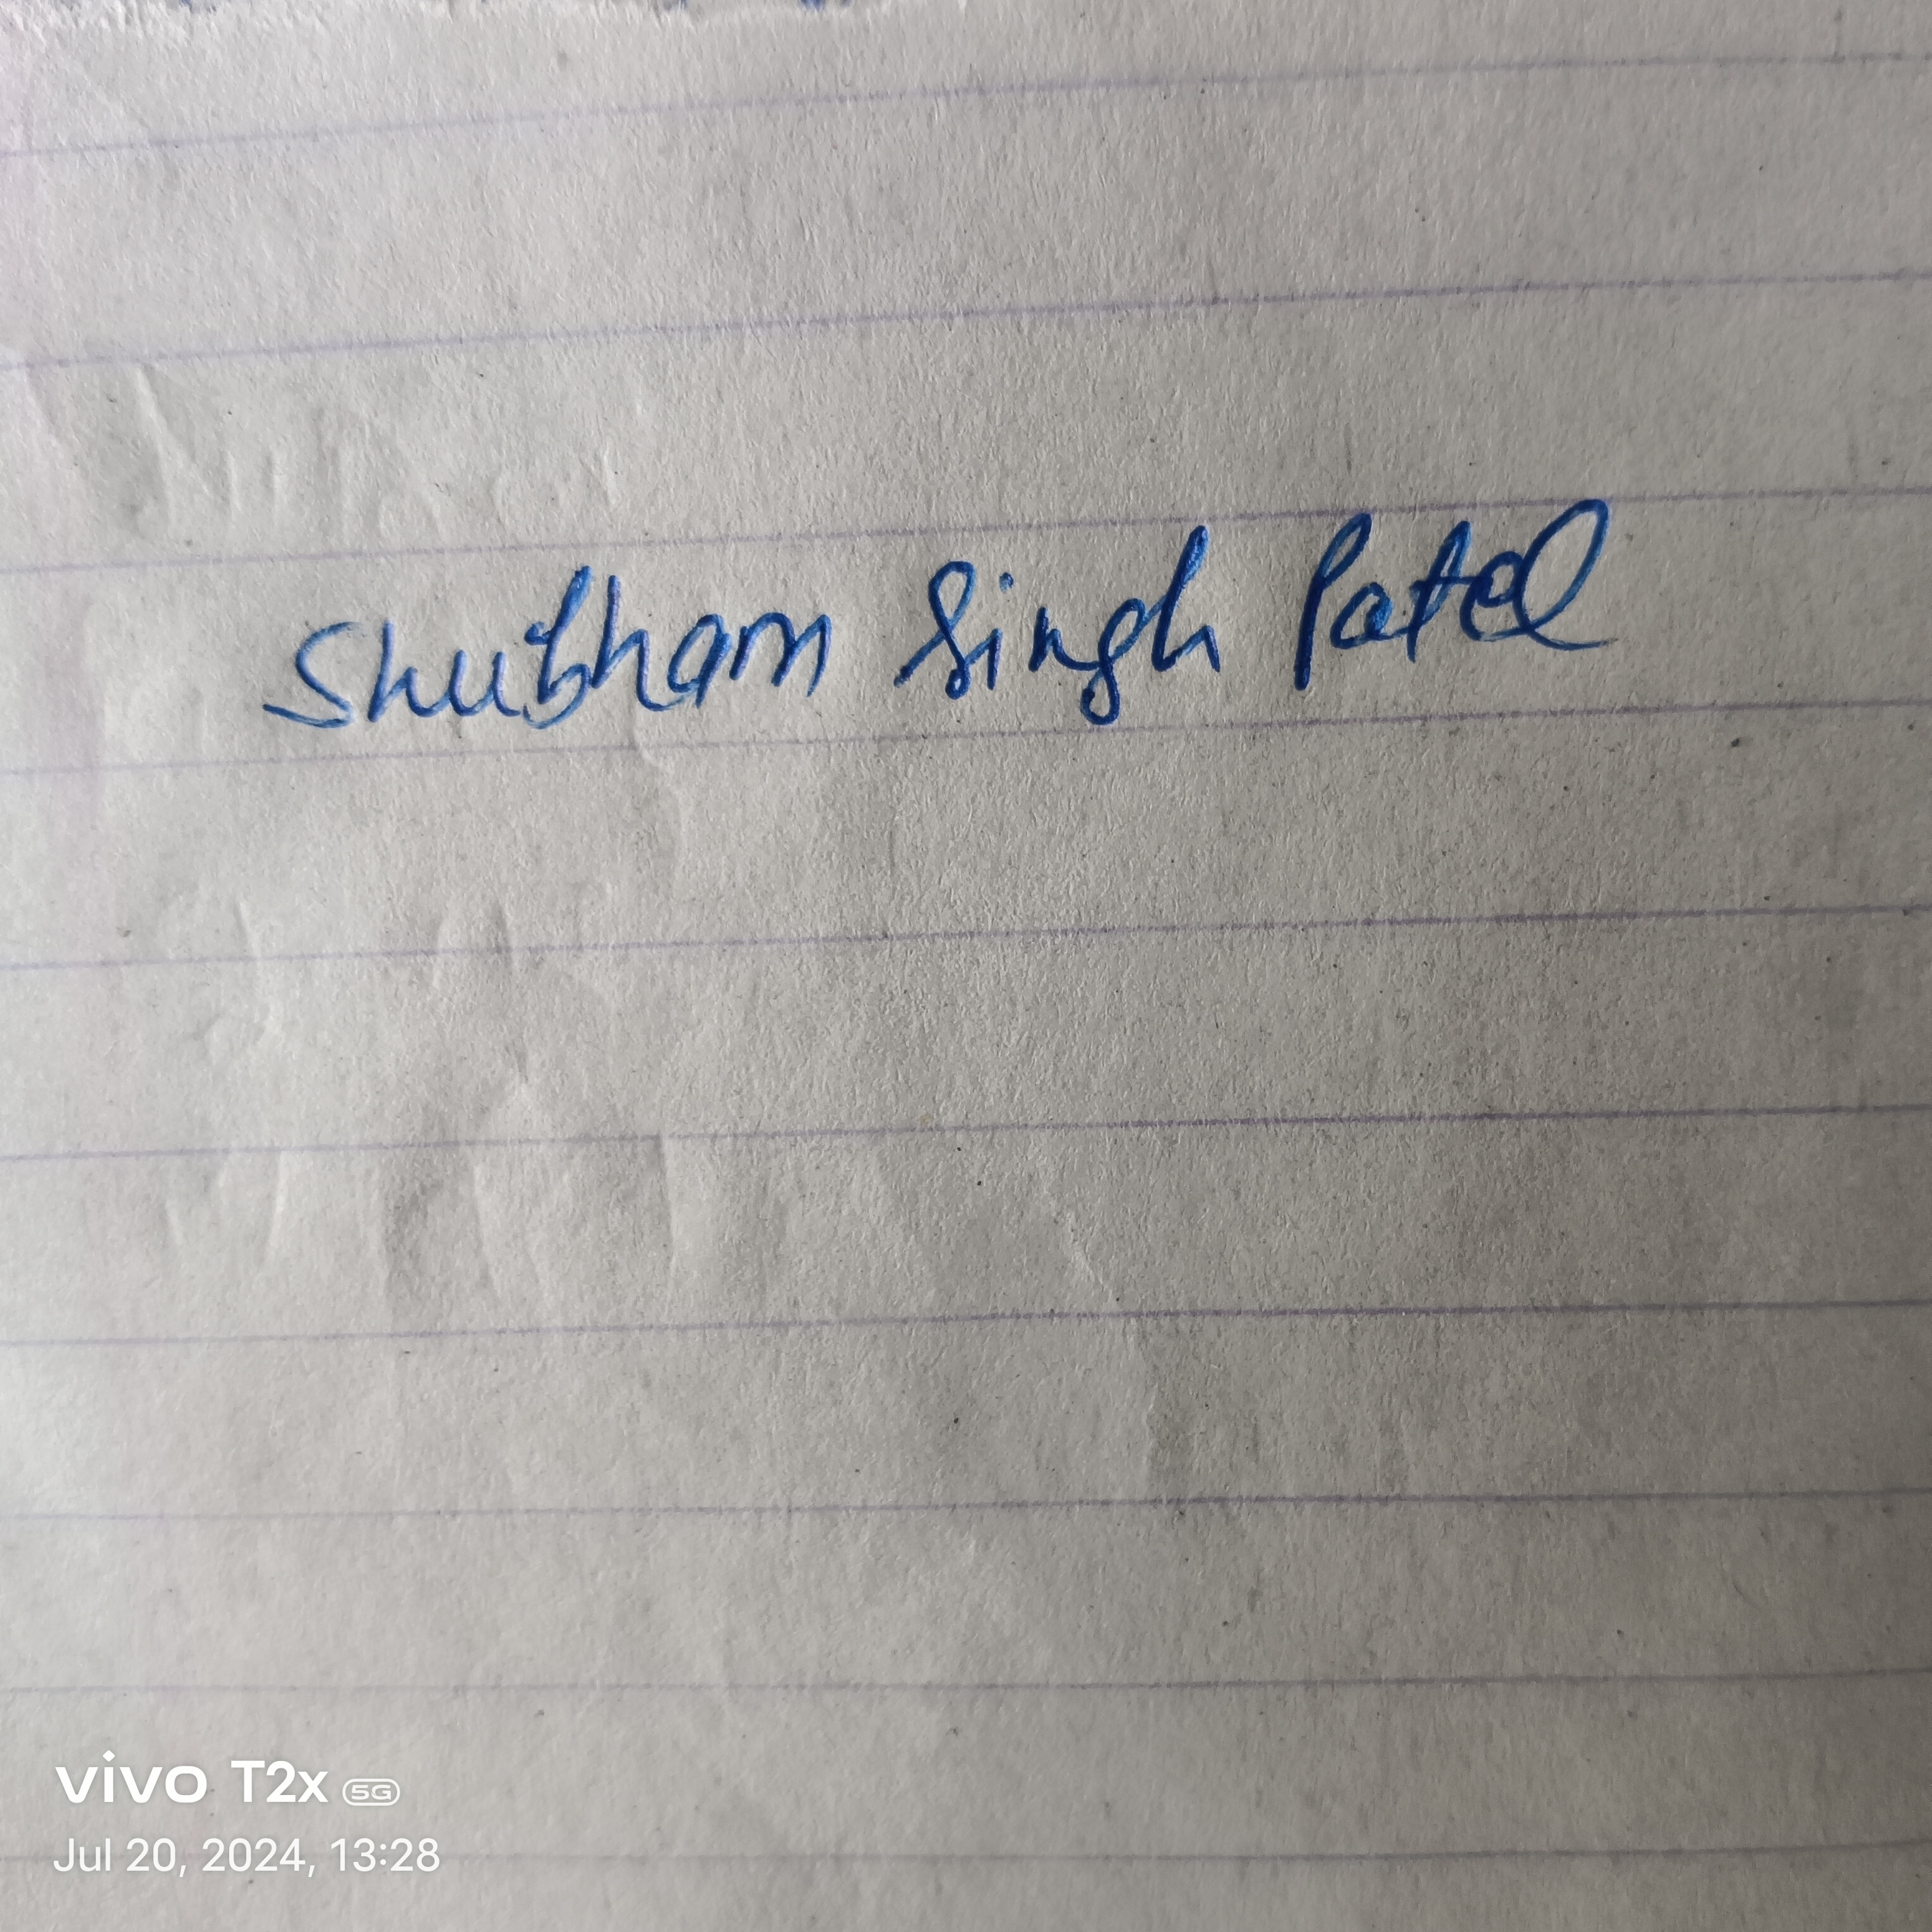 Shubham Singh Patel
vivo T2x 5G
Jul 20, 2024, 13:28